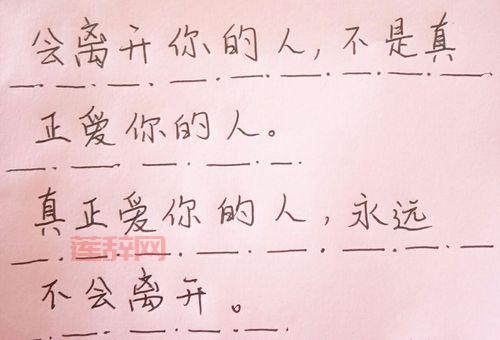 会离开你的人,不是真
正爱你的人。
真正爱你的人,永远
莲辞网
不会离开。